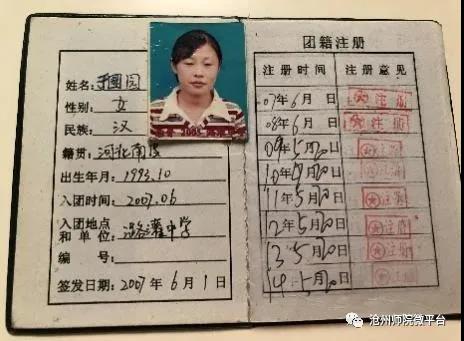 姓名:
性别: 女
民族: 汉
籍贯: 河北南皮
出生年月: 1993.10
入团时间: 2007.06
入团地点
和单位: 中学
编号:
签发日期: 2007 年 6 月 1 日
团籍注册
注册时间 注册意见
07年6月 日 注册
08年6月 日 注册
09年5月20日 注册
10年5月20日 注册
11年5月20日 注册
12年5月20日 注册
13年5月20日 注册
14年5月20日 注册
沧州师院微平台